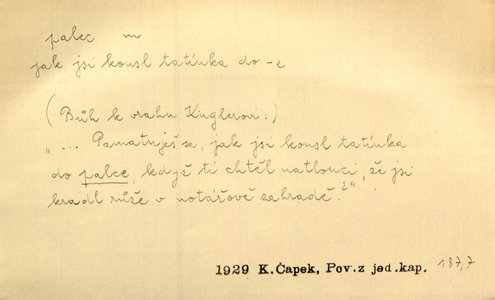 palec m
jak jsi kousl tatínka do -e
(Bůh k vrahu Kuglerovi:)
„... Pamatuješ se, jak jsi kousl tatínka
do palce, když ti chtěl natlouci, že jsi
kradl růže v notářově zahradě?"
1929 K.Čapek, Pov.z jed.kap. 187,7